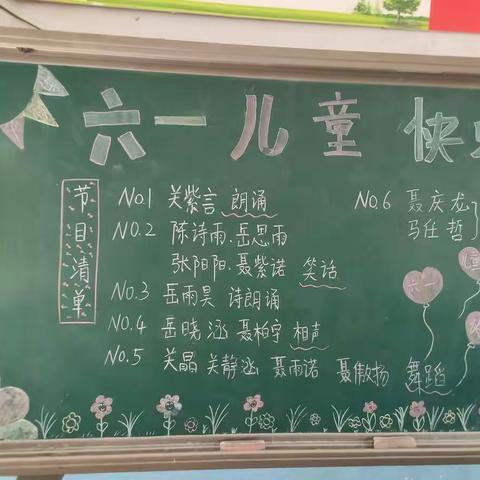 六一儿童 快乐
节目清单
No.1 关紫言 朗诵
NO.2 陈诗雨.岳思雨
张阳阳.聂紫诺 笑话
NO.3 岳雨昊 诗朗诵
NO.4 岳晓涵 聂柏宇 相声
NO.5 关晶 关静涵 聂雨诺 聂傲扬 舞蹈
NO.6 聂庆龙
马任哲
六一
儿童